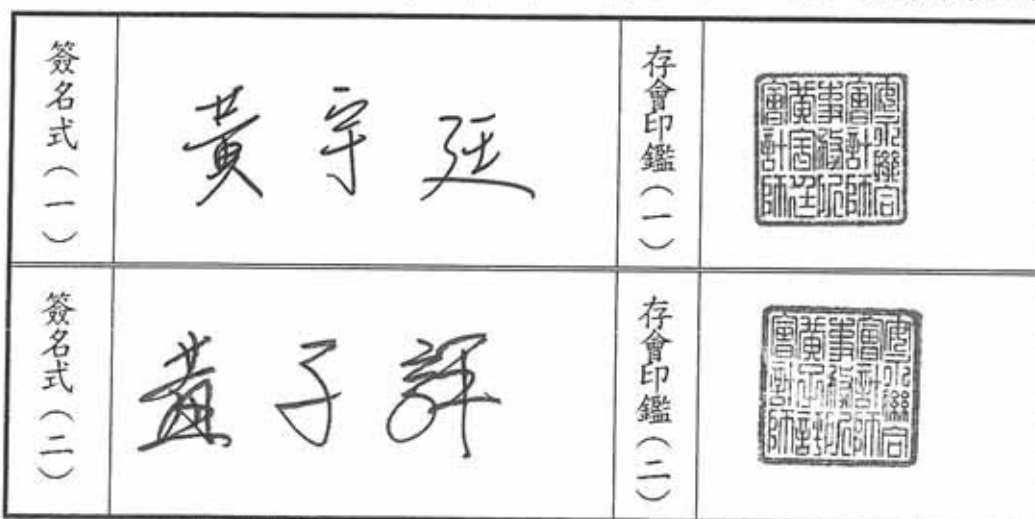 簽名式(一)
黃宇廷
存會印鑑(一)
安永聯合
會計師
事務所
黃宇廷
會計師
簽名式(二)
黃子評
存會印鑑(二)
安永聯合
會計師
事務所
黃子評
會計師